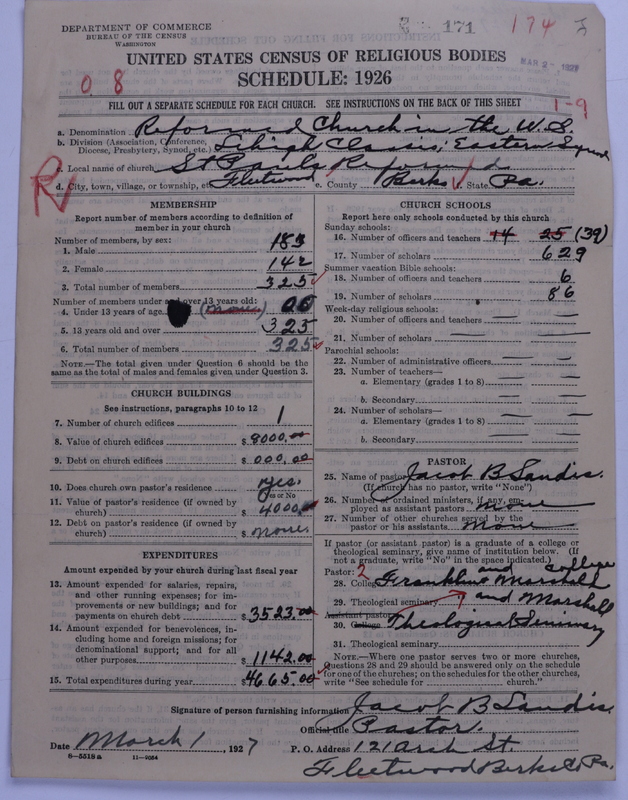 DEPARTMENT OF COMMERCE
BUREAU OF THE CENSUS
WASHINGTON
171
174
MAR 2 - 1927
UNITED STATES CENSUS OF RELIGIOUS BODIES
SCHEDULE: 1926
0 8
FILL OUT A SEPARATE SCHEDULE FOR EACH CHURCH. SEE INSTRUCTIONS ON THE BACK OF THIS SHEET
1-9
a. Denomination Reformed Church in the U.S.
b. Division (Association, Conference, Diocese, Presbytery, Synod, etc.) Lehigh Classis; Eastern Synod
c. Local name of church St Pauls Reformed
d. City, town, village, or township, etc. Fleetwood e. County Berks f. State Pa.
R
MEMBERSHIP
Report number of members according to definition of
member in your church
Number of members, by sex:
1. Male 183
2. Female 142
3. Total number of members 325
Number of members under and over 13 years old:
4. Under 13 years of age (none) 00
5. 13 years old and over 325
6. Total number of members 325
NOTE.—The total given under Question 6 should be the
same as the total of males and females given under Question 3.
CHURCH BUILDINGS
See instructions, paragraphs 10 to 12
7. Number of church edifices 1
8. Value of church edifices $ 8000.00
9. Debt on church edifices $ 000.00
10. Does church own pastor's residence yes.
Yes or No
11. Value of pastor's residence (if owned by
church) $ 4000.00
12. Debt on pastor's residence (if owned by
church) $ None.
EXPENDITURES
Amount expended by your church during last fiscal year
13. Amount expended for salaries, repairs,
and other running expenses; for im-
provements or new buildings; and for
payments on church debt $ 3523.00
14. Amount expended for benevolences, in-
cluding home and foreign missions; for
denominational support; and for all
other purposes $ 1142.00
15. Total expenditures during year $ 4665.00
CHURCH SCHOOLS
Report here only schools conducted by this church
Sunday schools:
16. Number of officers and teachers 14 25 (39)
17. Number of scholars 629
Summer vacation Bible schools:
18. Number of officers and teachers 6
19. Number of scholars 86
Week-day religious schools:
20. Number of officers and teachers
21. Number of scholars
Parochial schools:
22. Number of administrative officers
23. Number of teachers—
a. Elementary (grades 1 to 8)
b. Secondary
24. Number of scholars—
a. Elementary (grades 1 to 8)
b. Secondary
PASTOR
25. Name of pastor Jacob B Landis.
(If church has no pastor, write "None")
26. Number of ordained ministers, if any, em-
ployed as assistant pastors None
27. Number of other churches served by the
pastor or his assistants None
If pastor (or assistant pastor) is a graduate of a college or
theological seminary, give name of institution below. (If
not a graduate, write "No" in the space indicated.)
Pastor: 2
28. College Franklin and Marshall College
29. Theological seminary and Marshall
Assistant pastor:
30. College Theological Seminary
31. Theological seminary
NOTE.—Where one pastor serves two or more churches,
Questions 28 and 29 should be answered only on the schedule
for one of the churches; on the schedules for the other churches,
write "See schedule for church."
Signature of person furnishing information Jacob B Landis
Official title Pastor.
Date March 1, 1927 P. O. Address 121 Arch St.
8-5518a 11-9054
Fleetwood Berks Co Pa.